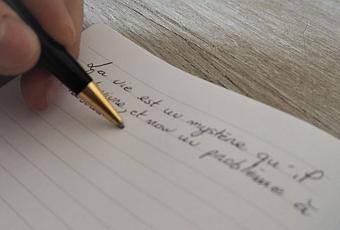 La vie est un mystère qu'il
vivre, et non un problème à